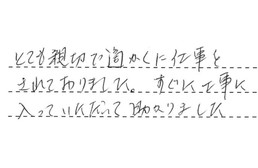 とても親切で適かくに仕事を
されておりました。すぐに工事に
入っていただいて助かりました